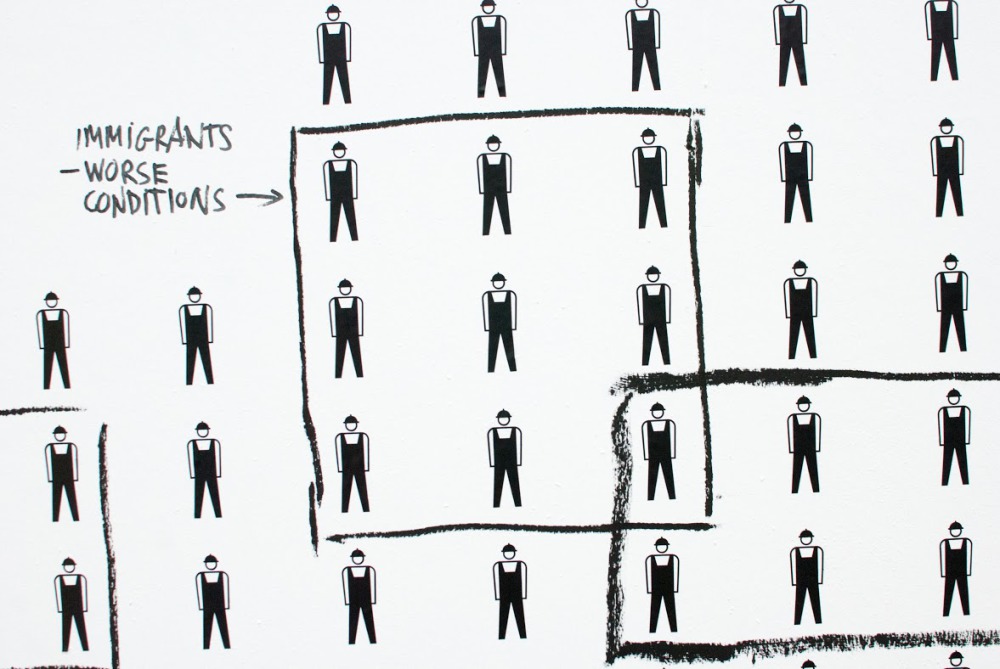 IMMIGRANTS
- WORSE
CONDITIONS →